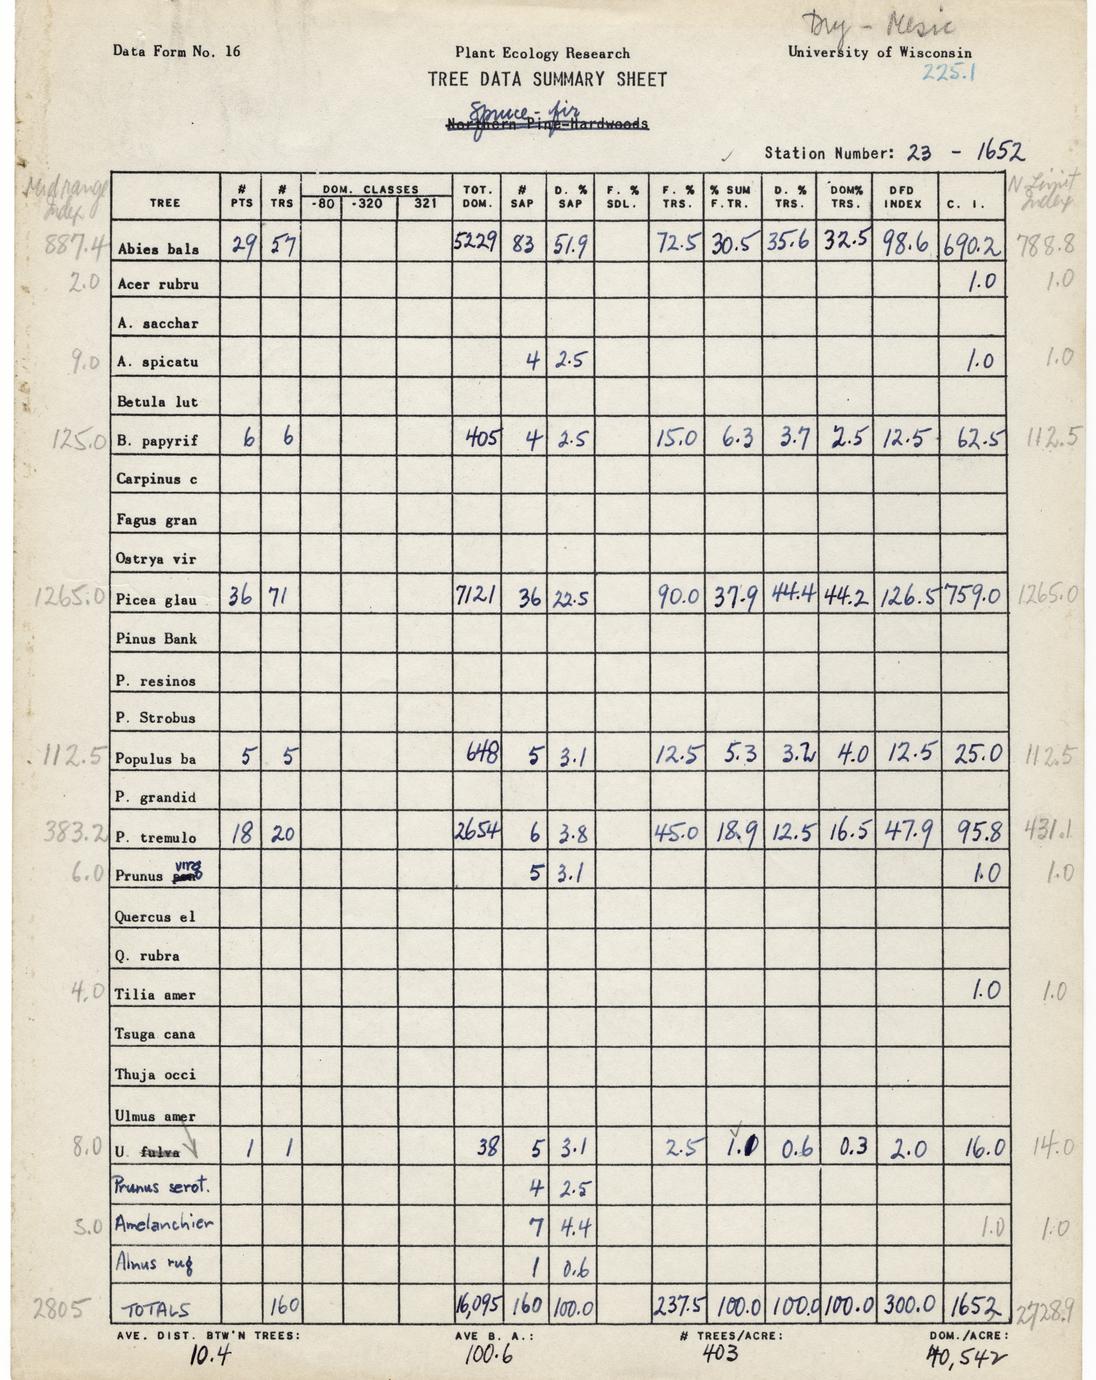 Dry - Mesic
Data Form No. 16 Plant Ecology Research University of Wisconsin
TREE DATA SUMMARY SHEET 225.1
Spruce - fir
Northern Pine-Hardwoods
Station Number: 23 - 1652
Midrange Index TREE # PTS # TRS DOM. CLASSES -80 -320 321 TOT. DOM. # SAP D. % SAP F. % SDL. F. % TRS. % SUM F.TR. D. % TRS. DOM% TRS. DFD INDEX C. I. N Limit Index
887.4 Abies bals 29 57 5229 83 51.9 72.5 30.5 35.6 32.5 98.6 690.2 788.8
2.0 Acer rubru 1.0 1.0
A. sacchar
9.0 A. spicatu 4 2.5 1.0 1.0
Betula lut
125.0 B. papyrif 6 6 405 4 2.5 15.0 6.3 3.7 2.5 12.5 62.5 112.5
Carpinus c
Fagus gran
Ostrya vir
1265.0 Picea glau 36 71 7121 36 22.5 90.0 37.9 44.4 44.2 126.5 759.0 1265.0
Pinus Bank
P. resinos
P. Strobus
112.5 Populus ba 5 5 648 5 3.1 12.5 5.3 3.2 4.0 12.5 25.0 112.5
P. grandid
383.2 P. tremulo 18 20 2654 6 3.8 45.0 18.9 12.5 16.5 47.9 95.8 431.1
6.0 Prunus virg 5 3.1 1.0 1.0
Quercus el
Q. rubra
4.0 Tilia amer 1.0 1.0
Tsuga cana
Thuja occi
Ulmus amer
8.0 U. fulva 1 1 38 5 3.1 2.5 1.0 0.6 0.3 2.0 16.0 14.0
Prunus serot. 4 2.5
5.0 Amelanchier 7 4.4 1.0 1.0
Alnus rug 1 0.6
2805 TOTALS 160 16,095 160 100.0 237.5 100.0 100.0 100.0 300.0 1652 2728.9
AVE. DIST. BTW'N TREES: AVE B. A.: # TREES/ACRE: DOM./ACRE:
10.4 100.6 403 40,542